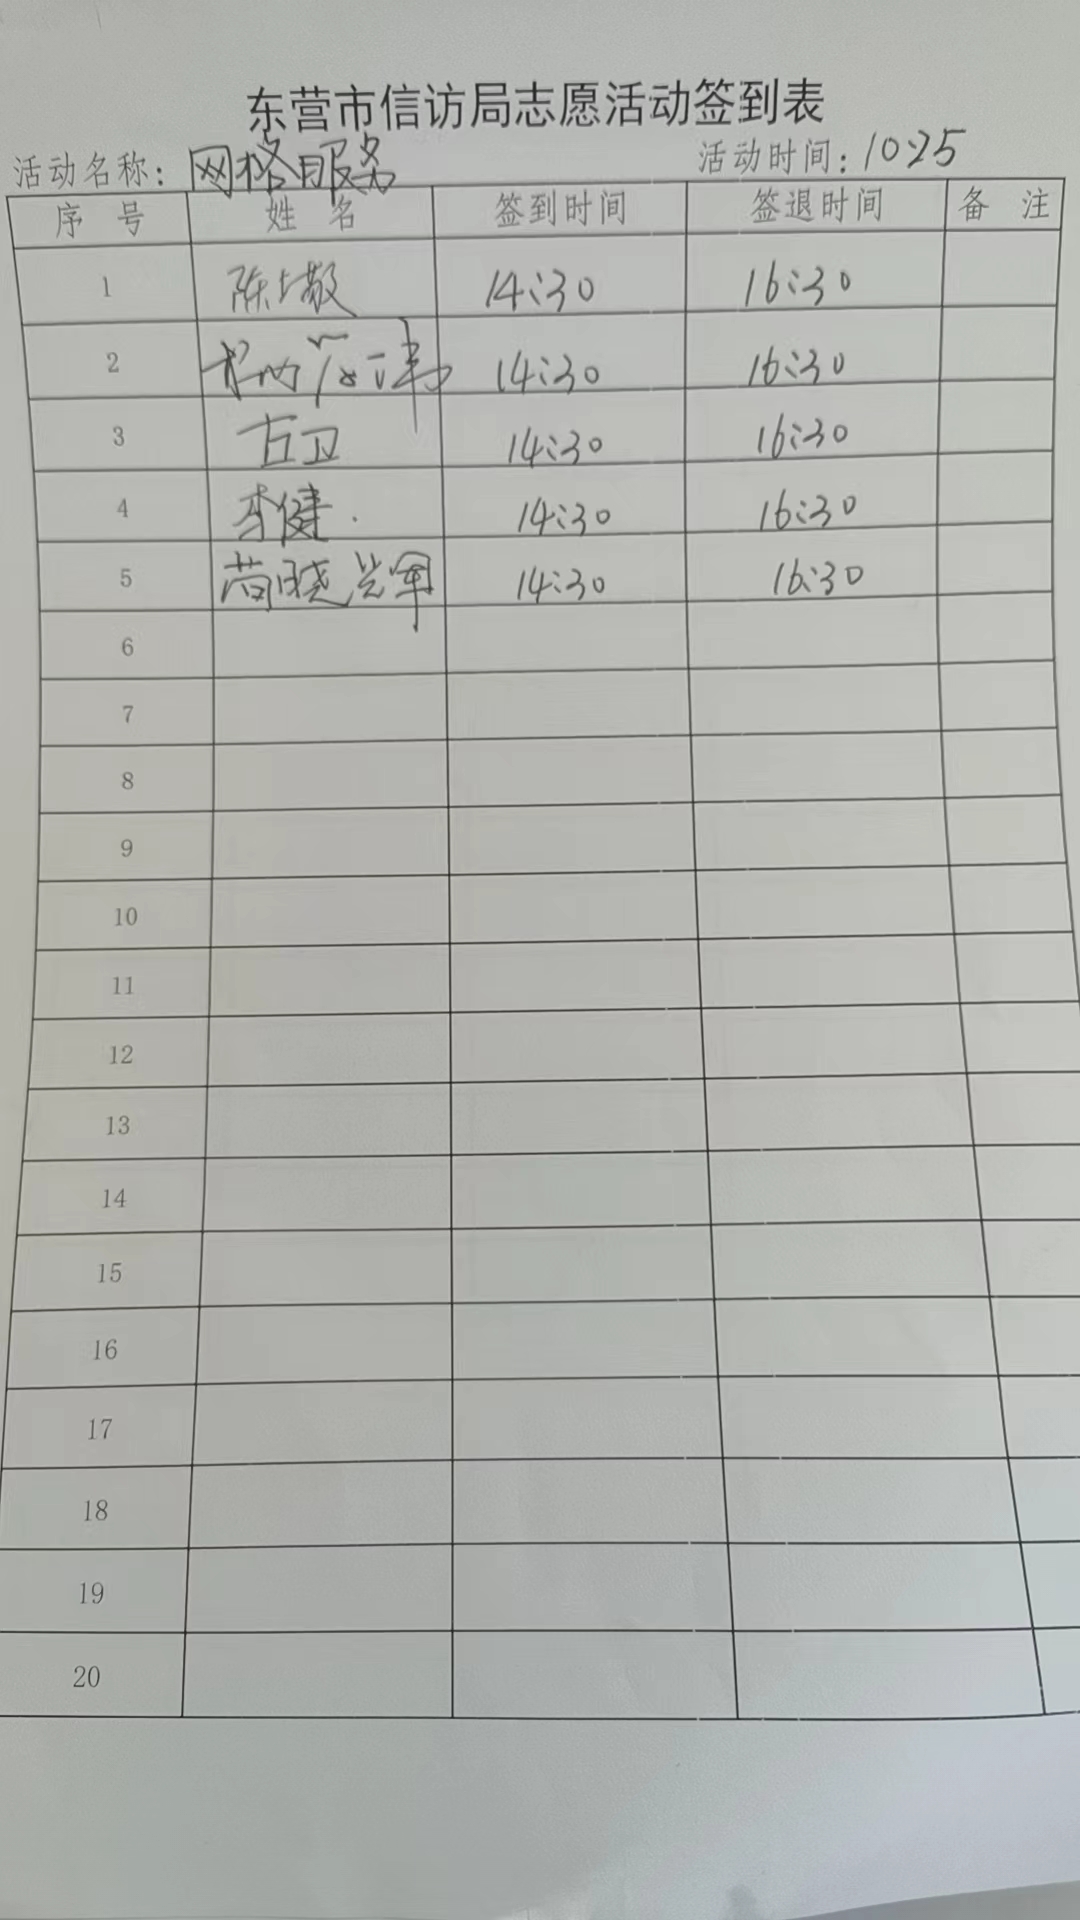 东营市信访局志愿活动签到表
活动名称：网格服务 活动时间：1025
序 号 姓 名 签到时间 签退时间 备 注
1 陈 敬 14:30 16:30
2 14:30 16:30
3 古卫 14:30 16:30
4 李健 14:30 16:30
5 14:30 16:30
6
7
8
9
10
11
12
13
14
15
16
17
18
19
20